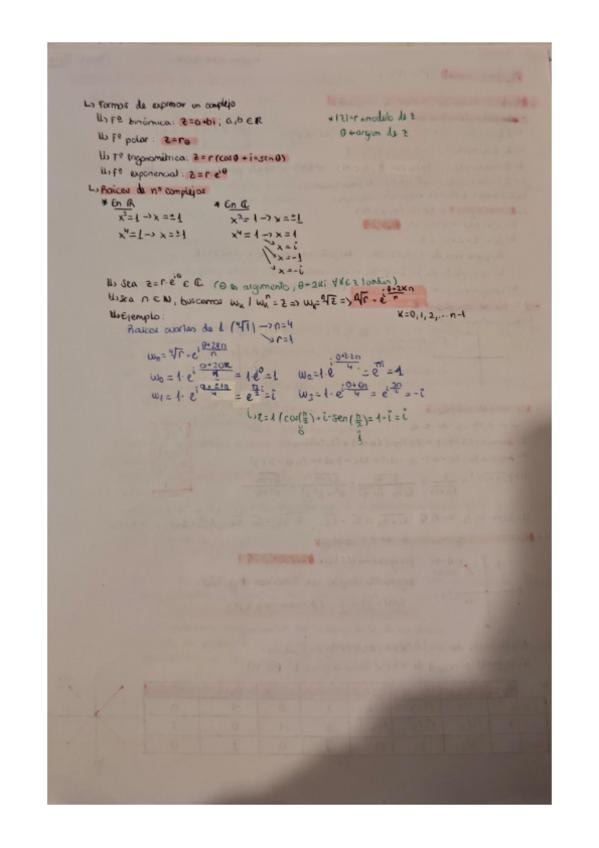 ↳ Formas de expresar un complejo
↳ Fª binómica: z=a+bi; a,b ∈ ℝ
* |z|=r → modelo de z
↳ Fª polar: z=r_θ
θ → argum de z
↳ Fª trigonométrica: z=r(cosθ+i·senθ)
↳ Fª exponencial: z=r·e^{iθ}
↳ Raíces de nº complejos
* En ℝ * En ℂ
x²=1 → x=±1 x²=1 → x=±1
x⁴=1 → x=±1 x⁴=1 → x=1
→ x=i
→ x=-1
→ x=-i
↳ Sea z=r·e^{iθ} ∈ ℂ (θ es argumento, θ+2Ki ∀K∈ℤ
↳ Sea n ∈ ℕ, buscamos w_k / w_k^n = z => w_k=ⁿ√z => ⁿ√r · e^{i (θ+2Kπ)/n}
K=0,1,2,...n-1
↳ Ejemplo:
Raíces cuartas de 1 (⁴√1) → n=4
→ r=1
w_0 = 1·e^{i (0+2·0π)/4} = 1·e⁰=1 w_2=1·e^{i (0+2·2π)/4} = e^{πi} =
w_1 = 1·e^{i (0+2·1π)/4} = e^{π/2 i}=i w_3=1·e^{i (0+6π)/4} = e^{i 3π/2} = -i
↳ z=1(cos(π/2)+i·sen(π/2)=1·i=i
0 1